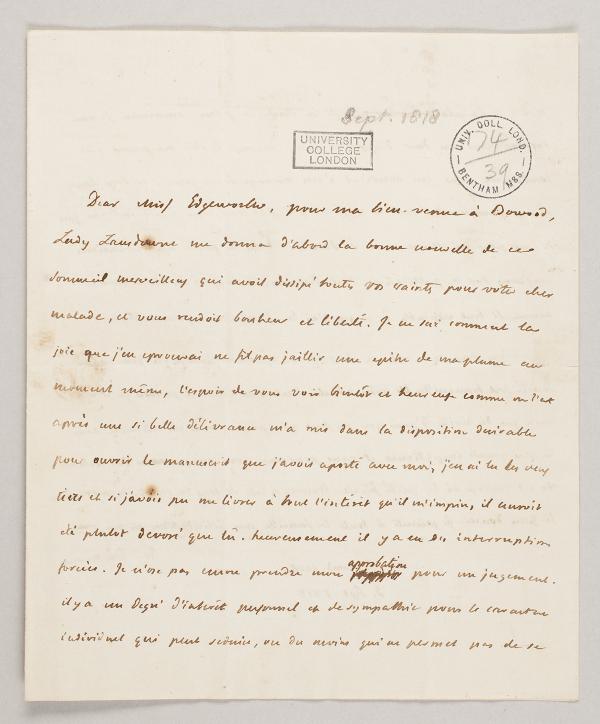 Sept. 1818
UNIVERSITY
COLLEGE
LONDON
UNIV. COLL. LOND.
74
39
BENTHAM MSS.
Dear Miss Edgeworth, pour ma bien-venue à Bowood,
Lady Lansdowne me donna d'abord la bonne nouvelle de ce
sommeil merveilleux qui avoit dissipé toutes vos craintes pour votre cher
malade, et vous rendoit bonheur et liberté. Je ne sai comment la
joie que j'en eprouvai ne fit pas jaillir une epitre de ma plume au
moment même, l'espoir de vous voir bientôt et heureuse comme on l'est
après une si belle délivrance m'a mis dans la disposition desirable
pour ouvrir le manuscrit que j'avois aporté avec moi, j'en ai lu les deux
tiers et si j'avois pu me livrer à tout l'intérêt qu'il m'inspire, il auroit
été plutot devoré que lû. heureusement il y a eu des interruptions
forcées. Je n'ose pas encore prendre mon approbation pour un jugement.
il y a un degré d'intérêt personnel et de sympathie pour le caractere
individuel qui peut seduire, ou du moins qui ne permet pas de se